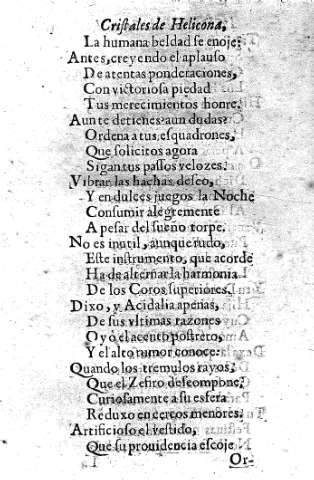 Cristales de Helicona,
La humana beldad se enoje:
Antes, creyendo el aplauso
De atentas ponderaciones,
Con victoriosa piedad
Tus merecimientos honre.
Aun te detienes? aun dudas?
Ordena a tus esquadrones,
Que solicitos agora
Sigan tus passos velozes.
Vibrar las hachas deseo,
Y en dulces juegos la Noche
Consumir alegremente
A pesar del sueño torpe.
No es inutil, aunque rudo,
Este instrumento, que acorde
Ha de alternar la harmonia
De los Coros superiores.
Dixo, y Acidalia apenas,
De sus vltimas razones
Oyó el acento postrero,
Y el alto rumor conoce:
Quando los tremulos rayos,
Que el Zefiro descompone,
Curiosamente a su esfera
Reduxo en cercos menores.
Artificioso el vestido,
Que su prouidencia escoje
Or-